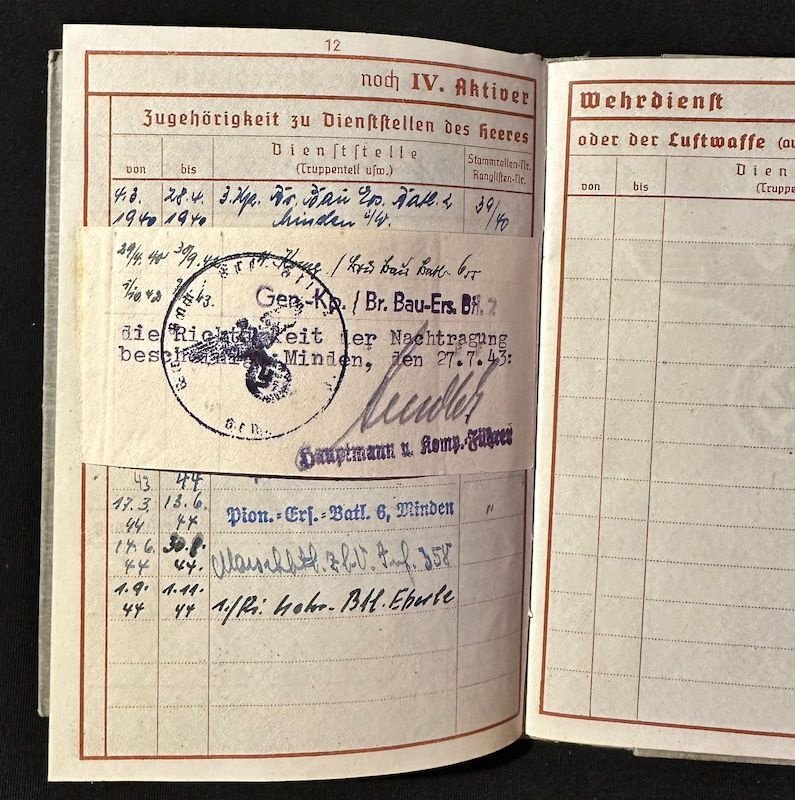 12
noch IV. Aktiver
Zugehörigkeit zu Dienststellen des Heeres
von bis Dienststelle (Truppenteil usw.) Stammrollen-Nr. Ranglisten-Nr.
4.3. 28.4. 3. Kp. Br. Bau Ers. Batl. 2 39/
1940 1940 Minden i/W. 40
29/4.40 30/9.42 / Bau Batl.
1/10 42 43. Gen.-Kp. / Br. Bau-Ers. Btl. 2
die Richtigkeit der Nachtragung
bescheinigt Minden, den 27.7.43:
Hauptmann u. Komp.-Führer
43 44
17.3. 13.6. Pion.-Ers.-Batl. 6, Minden "
44 44
14.6. 30.8. Marschbtl. z.b.V. Inf. 358
44 44.
1.9. 1.11. 1./Pi. Btl. Eberle
44 44
Wehrdienst
oder der Luftwaffe (au
von bis Dien
(Truppe